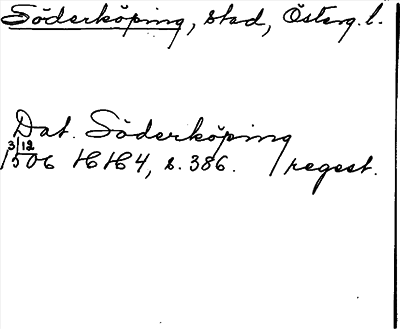 Söderköping, stad, Österg. l.
Dat. Söderköping
3/12
1506 HH4, s. 386. regest.